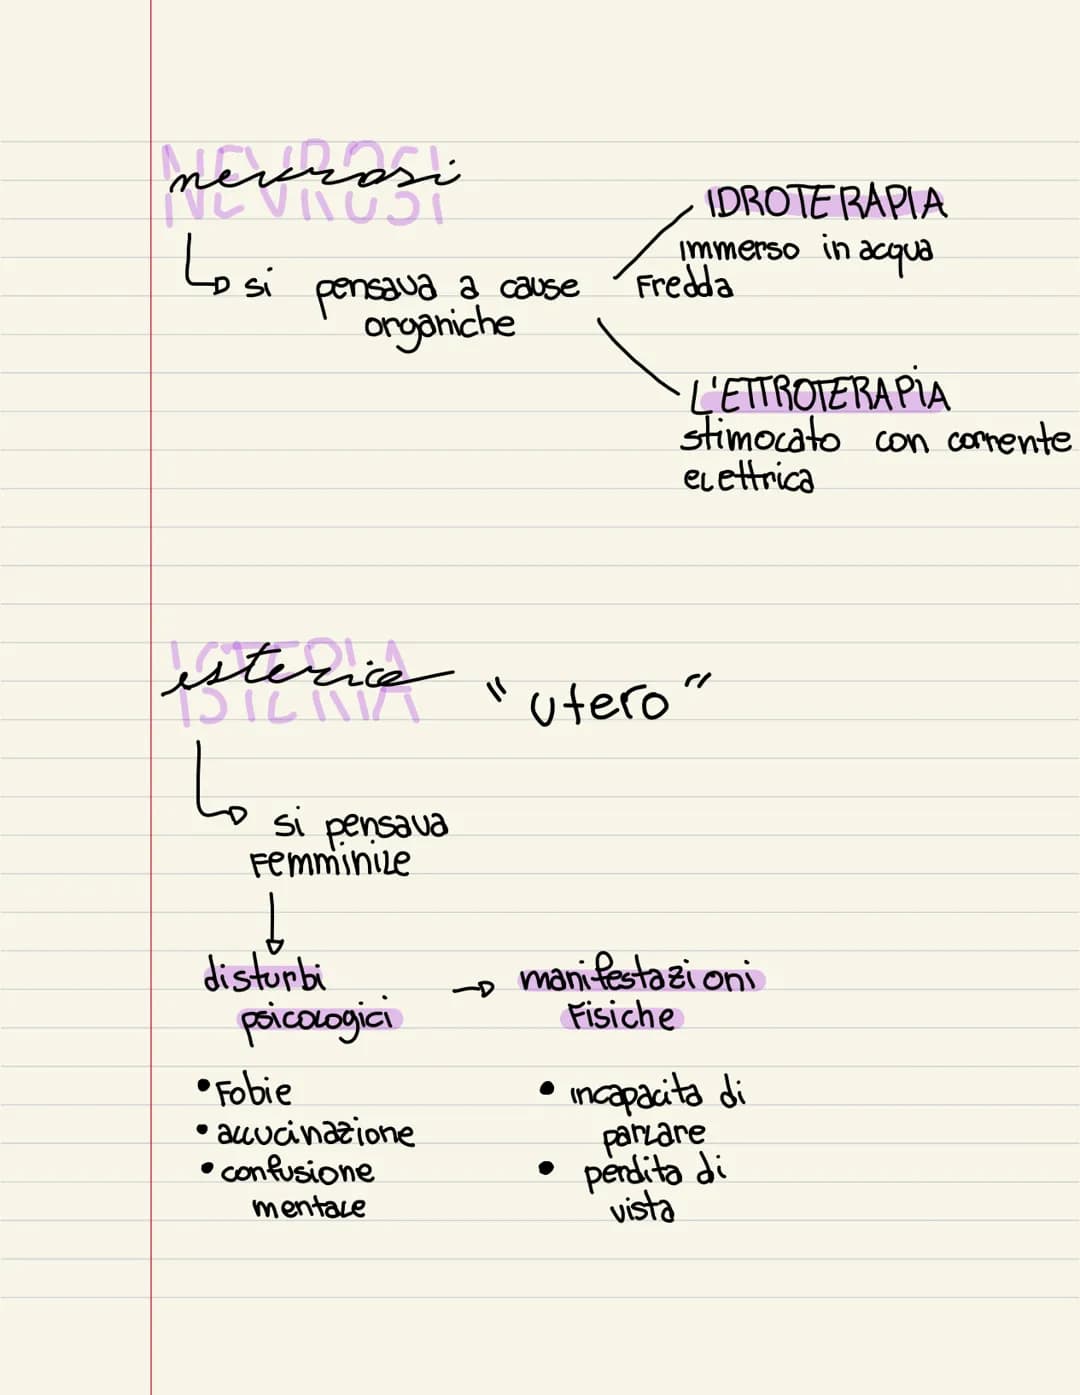 NEVROSI
nevrosi
si pensava a cause
organiche
IDROTERAPIA
immerso in acqua
Fredda
L'ETTROTERAPIA
stimolato con corrente
elettrica
ISTERIA
isterica "utero"
si pensava
Femminile
disturbi
psicologici
manifestazioni
Fisiche
• Fobie
• allucinazione
• confusione
mentale
• incapacita di
parlare
• perdita di
vista